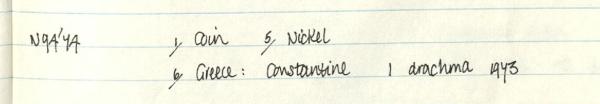 N94'74 1, Coin 5, Nickel
6, Greece: Constantine 1 drachma 1973